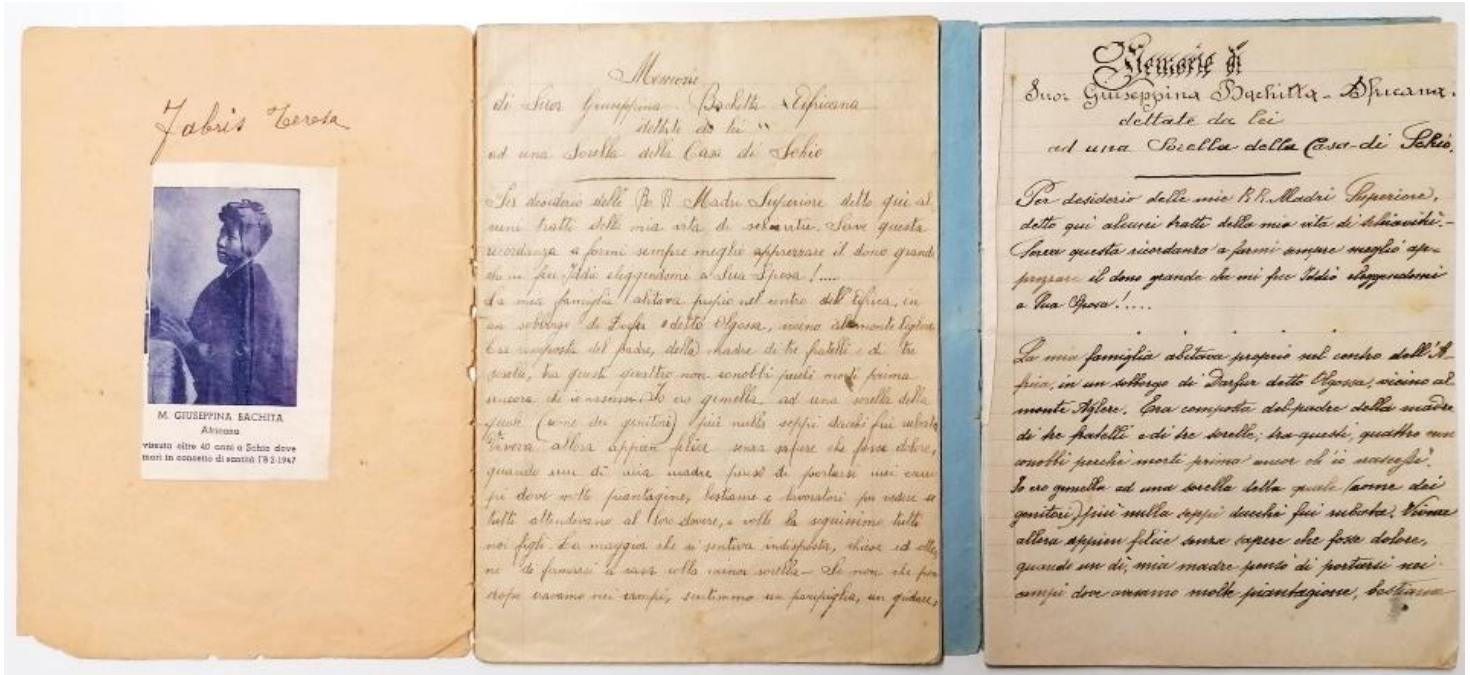 Fabris Teresa
M. GIUSEPPINA BACHITA
Africana
vissuta oltre 40 anni a Schio dove
morì in concetto di santità l'8-2-1947
Memorie
di Suor Giuseppina Bachita Africana
dettate da lei
ad una Sorella della Casa di Schio
Per desiderio delle R R Madri Superiore detto qui al
cuni tratti della mia vita di schiavitù. Serve questa
ricordanza a farmi sempre meglio apprezzare il dono grande
che mi fece Iddio eleggendomi a Sua Sposa!....
La mia famiglia abitava proprio nel centro dell'Africa, in
un sobborgo di detto Olgossa, vicino al monte
Era composta del padre, della madre di tre fratelli e di tre
sorelle, tra questi quattro non conobbi perchè morti prima
ancora che io nascessi. Io ero gemella ad una sorella della
quale (come dei genitori) più nulla seppi dacchè fui rubata
Vivevo allora appien felice senza sapere che fosse dolore,
quando un dì mia madre pensò di portarsi nei cam
pi dove molte piantagine, bestiame e lavoratori per vedere se
tutti attendevano al loro dovere, e volle la seguissimo tutti
noi figli. La maggior che si sentiva indisposta, chiese ed otten
ne di fermarsi a casa colla minor sorella — Se non che
dopo eravamo nei campi, sentimmo un parapiglia, un gridare,
Memorie di
Suor Giuseppina Bachitta - Africana.
dettate da lei
ad una Sorella della Casa di Schio.
Per desiderio delle mie R.R. Madri Superiore,
detto qui alcuni tratti della mia vita di schiavitù.-
Serva questa ricordanza a farmi sempre meglio ap-
prezzare il dono grande che mi fece Iddio eleggendomi
a Sua Sposa!....
La mia famiglia abitava proprio nel centro dell'A-
frica, in un sobborgo di Darfur detto Olgossa, vicino al
monte Agilere. Era composta del padre della madre
di tre fratelli e di tre sorelle; tra questi, quattro non
conobbi perchè morti prima ancor ch'io nascessi.
Io ero gemella ad una sorella della quale (come dei
genitori) più nulla seppi dacchè fui rubata. Vivevo
allora appien felice senza sapere che fosse dolore,
quando un dì, mia madre pensò di portarsi nei
campi dove avevamo molte piantagione, bestiame